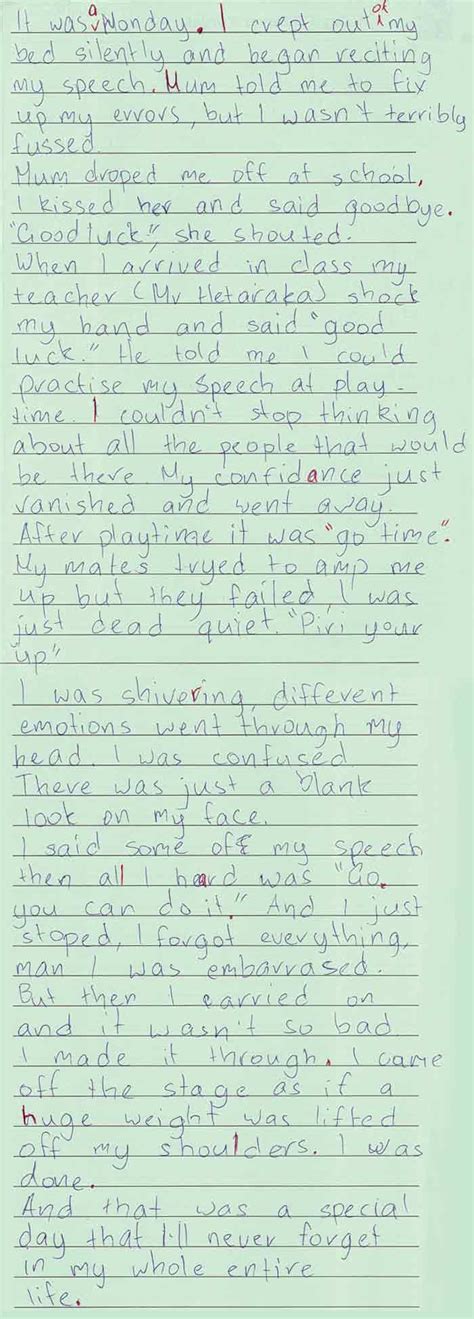 It was a Monday. I crept out of my
bed silently and began reciting
my speech. Mum told me to fix
up my errors, but I wasn't terribly
fussed.
Mum droped me off at school,
I kissed her and said goodbye.
"Good luck", she shouted.
When I arrived in class my
teacher (Mr Hetaraka) shock
my hand and said "good
luck." He told me I could
practise my speech at play-
time. I couldn't stop thinking
about all the people that would
be there My confidance just
vanished and went away.
After playtime it was "go time".
My mates tryed to amp me
up but they failed, I was
just dead quiet. "Piri your
up"
I was shivering, different
emotions went through my
head. I was confused
There was just a blank
look on my face.
I said some of my speech
then all I heard was "Go,
you can do it." And I just
stoped, I forgot everything,
man I was embarrased.
But then I carried on
and it wasn't so bad
I made it through. I came
off the stage as if a
huge weight was lifted
off my shoulders. I was
done.
And that was a special
day that I'll never forget
in my whole entire
life.